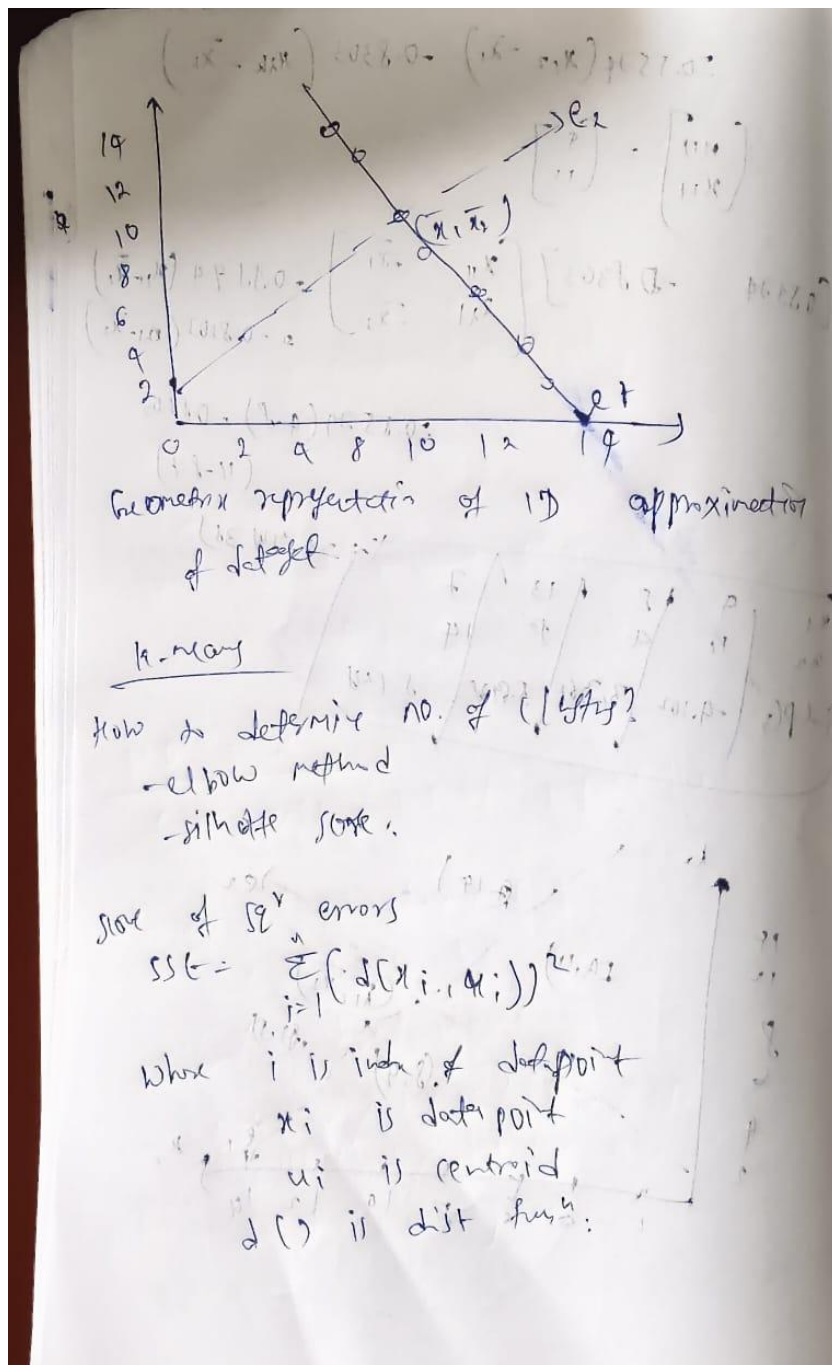 e2
14
12
10
8
6
4
2
(x̄1, x̄2)
e1
0 2 4 8 10 12 14
Geometric representation of 1D approximation
of dataset
K-means
How to determine no. of clusters?
- elbow method
- silhoette score.
of sqr errors
SSE = Σ (d(xi, ui))²
n
i=1
Where i is index of datapoint
xi is data point
ui is centroid
d() is dist funn.